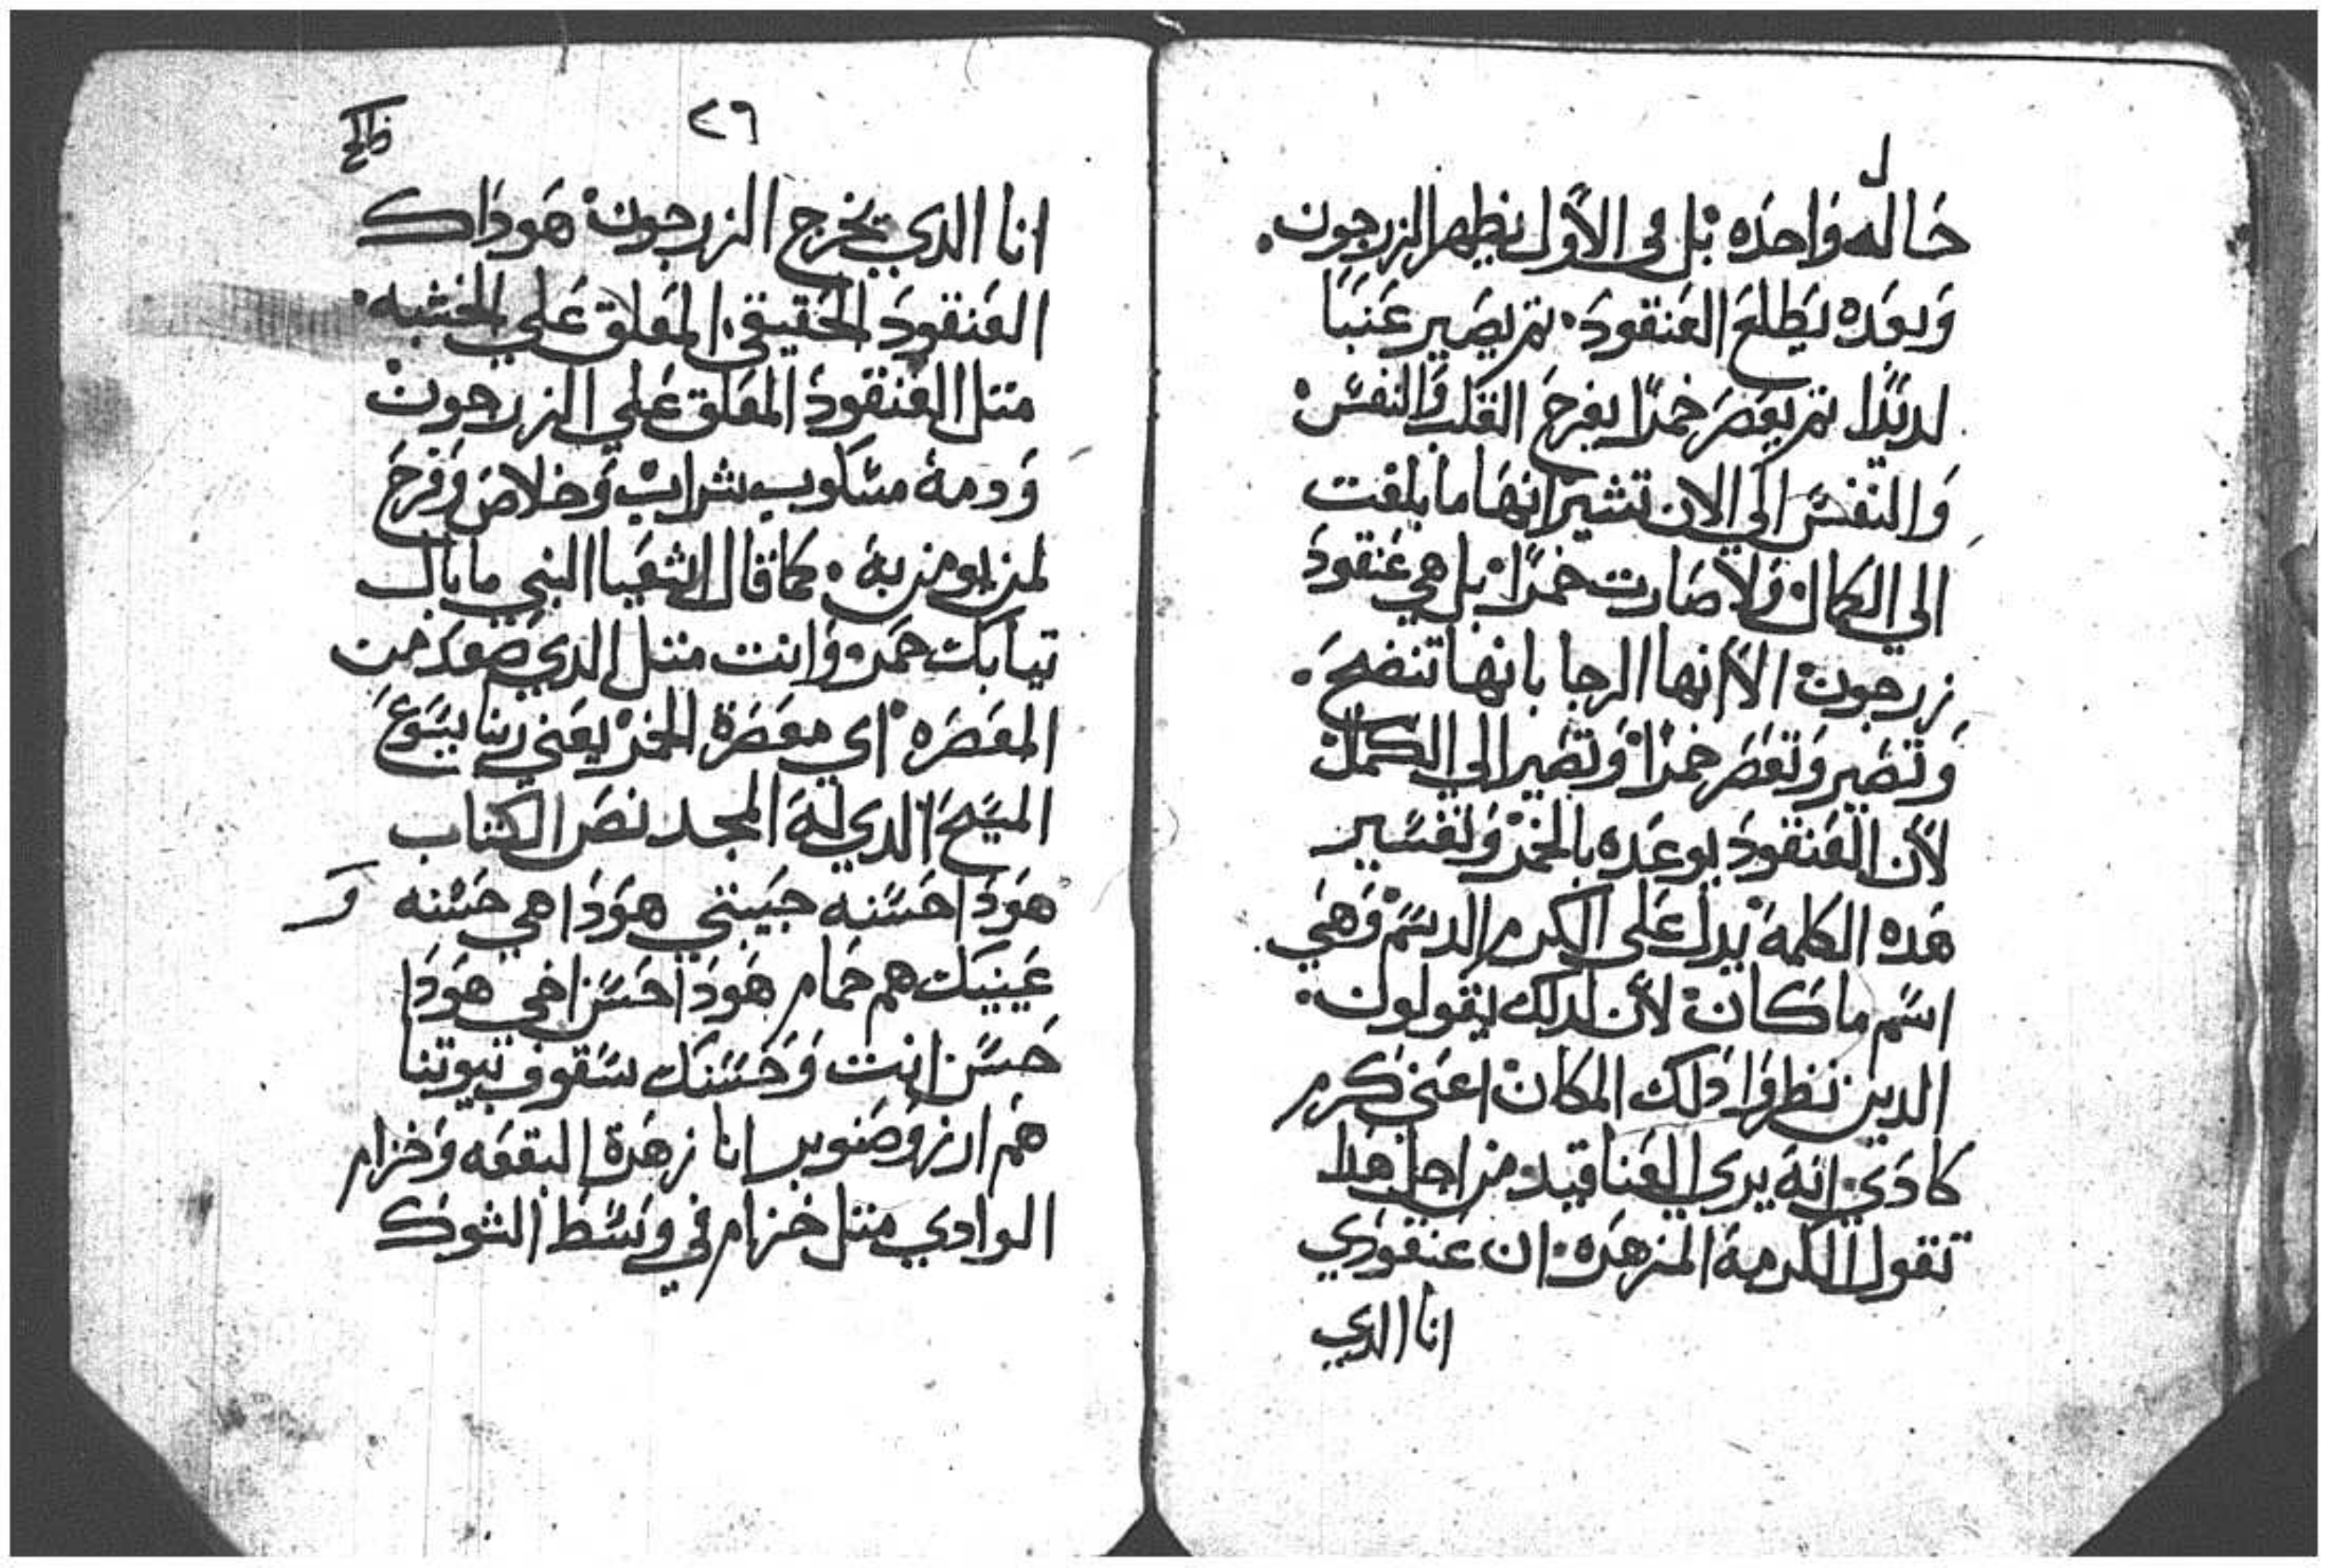 حاله واحده بل في الاول يظهر الزرجون.
وبعده يطلع العنقود. تم يصير عنبًا
لديدًا تم يعصر خمرًا يفرح القلب والنفس.
والنفس الي الان تشير انها ما بلغت
الي الكمال ولا صارت خمرًا بل هي عنقود
زرجون الا انها الرجا بانها تنضج.
وتصير وتعصر خمرًا وتصير الي الكمال
لان العنقود يوعده بالخمر وتفسير
هده الكلمة يدل علي الكرم الدسم وهي
اسم ما كان لان لدلك يقولون.
الدين نظروا دلك المكان اعني كرم
كادي. انه يري العناقيد من اجل هدا
تقول الكرمة المزهره. ان عنقودي
انا الدي
٢٦
انا الدي يخرج الزرجون هوداك
العنقود الحقيقي. المعلق علي الخشبه.
متل العنقود المعلق علي الزرجون
ودمة مسكوب شراب وخلاص وفرح
لمن يومن به. كما قال اشعيا النبي ما بال
تيابك حمر وانت متل الدي صعد من
المعصره اي معصرة الخمر يعني ربنا يسوع
المسيح الدي له المجد نص الكتاب
هودا حسنه حبيبتي هودا هي حسنه
عينيك هم حمام هودا حسن اخي هودا
حسن انت وحسنك سقوف بيوتنا
هم ارز وصنوبر انا زهرة البقعه وخزام
الوادي متل خزام في وسط الشوك